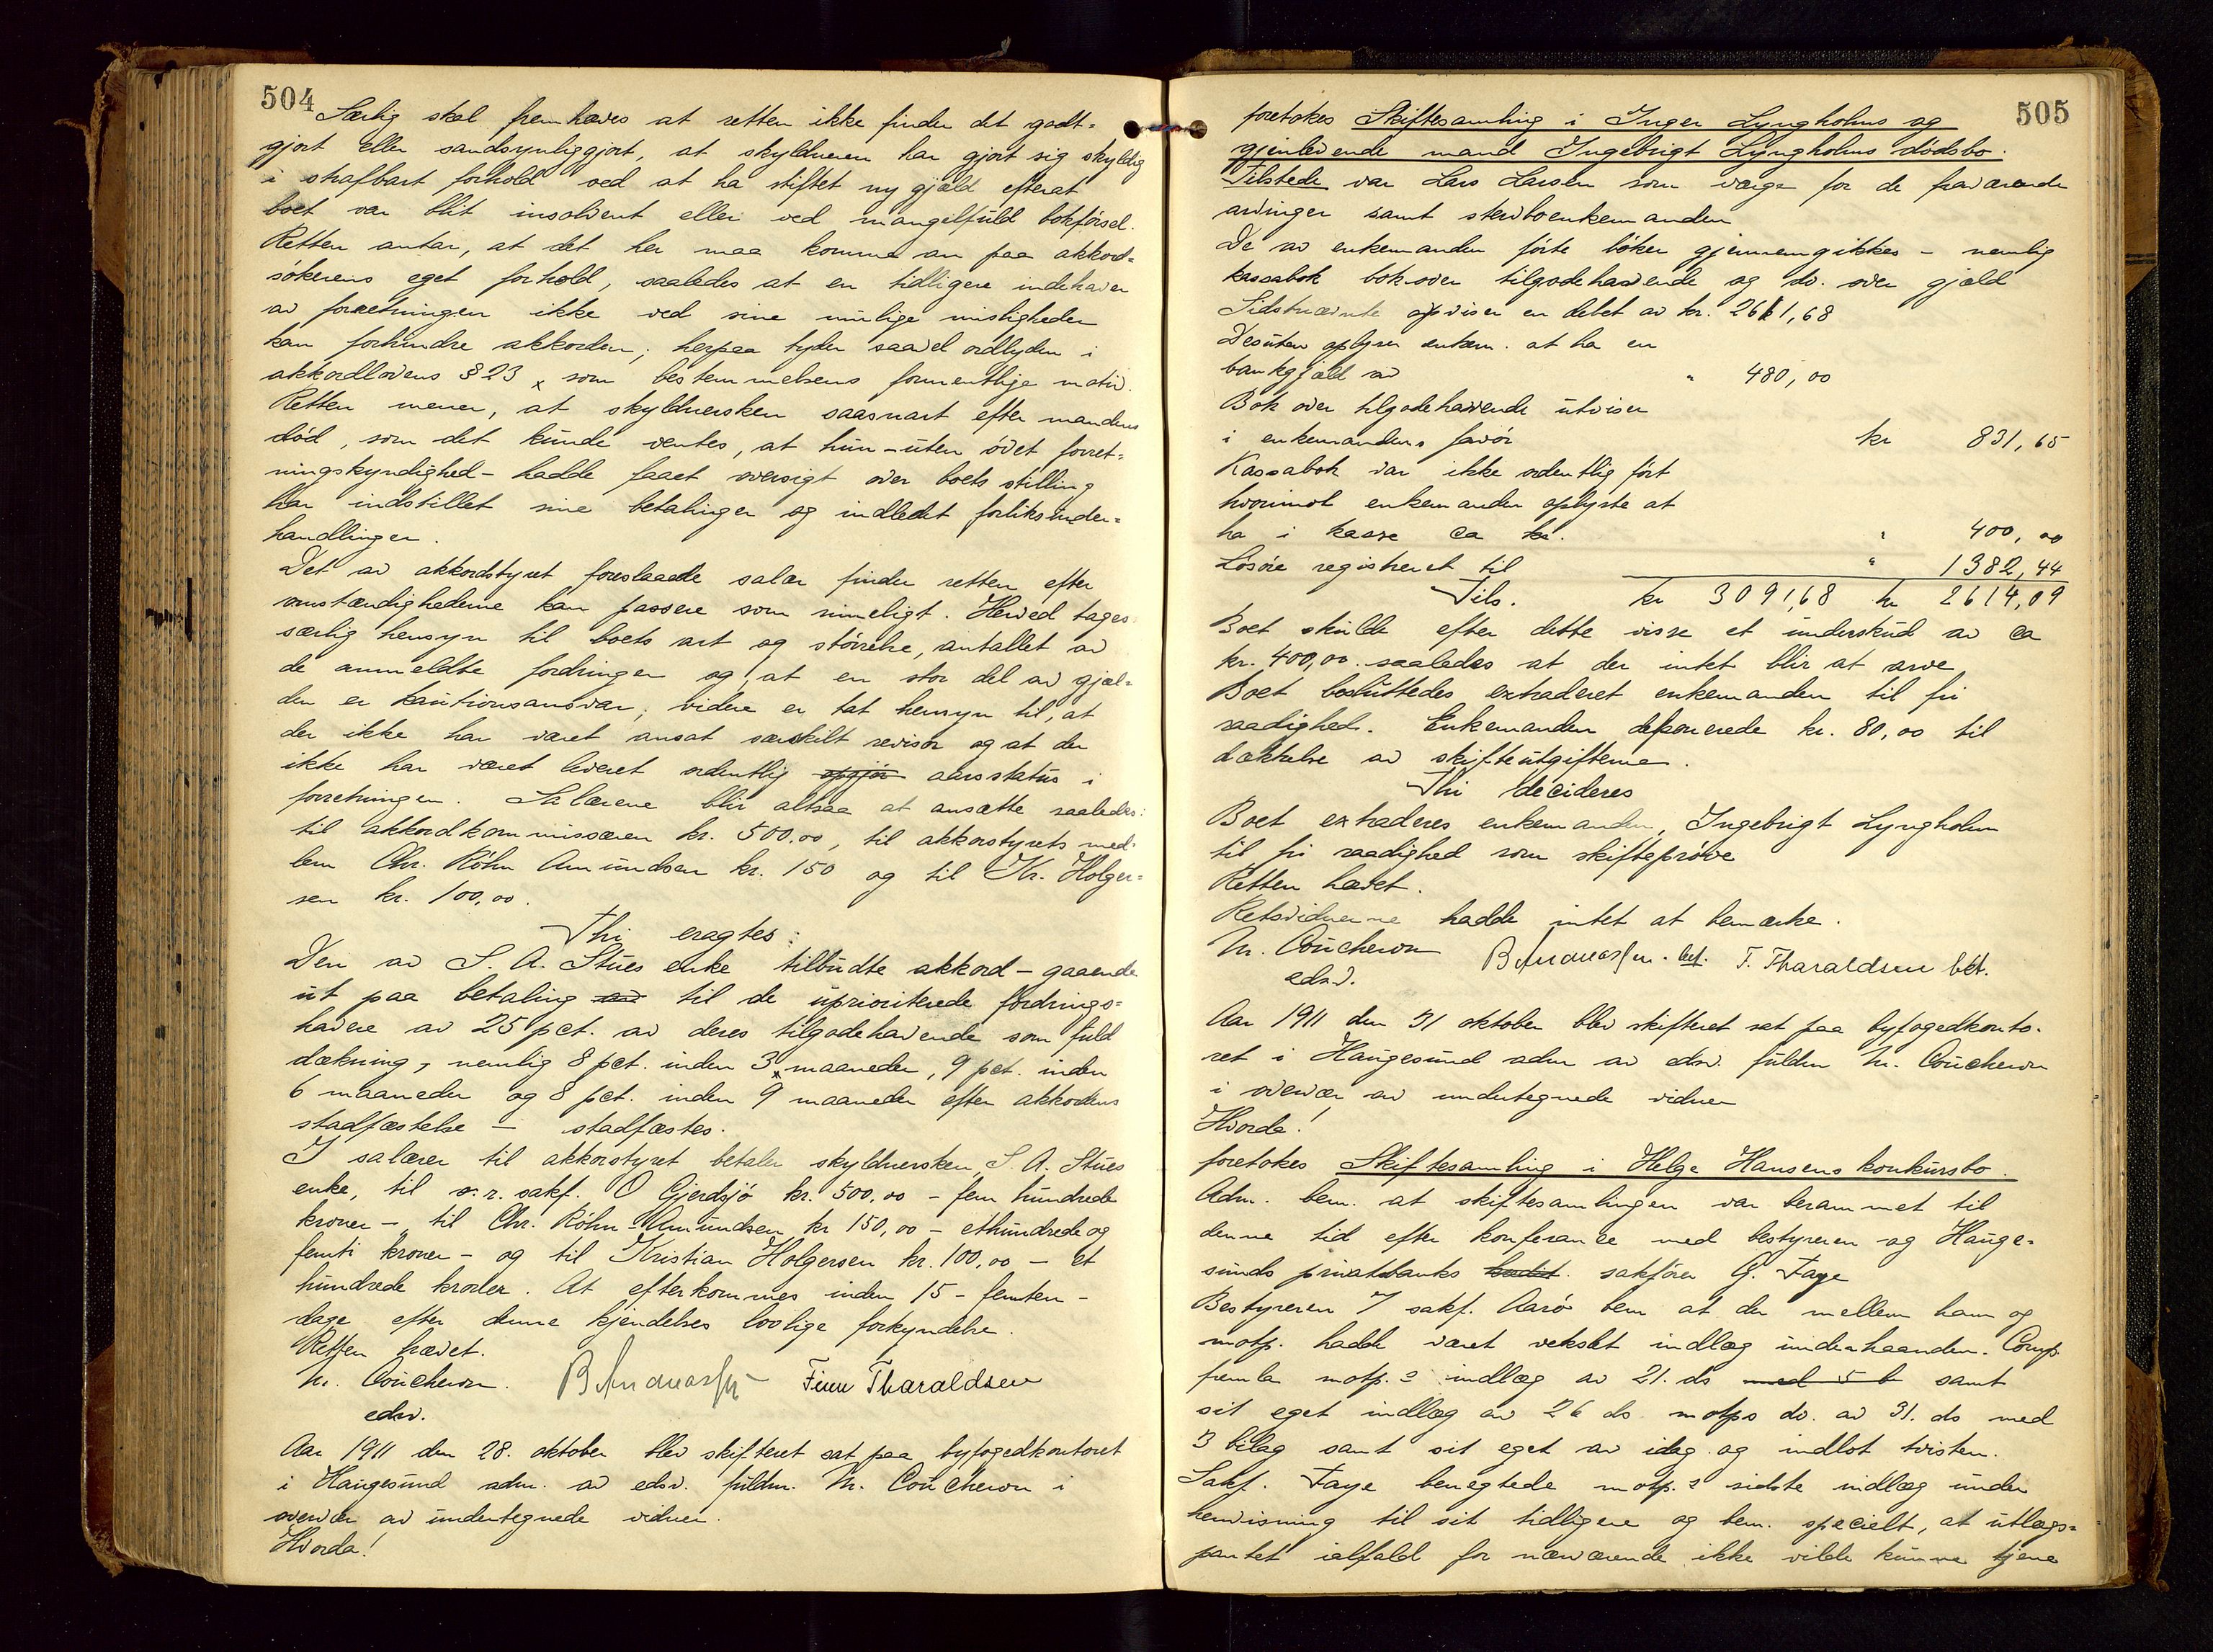 504
Særlig skal fremhæves at retten ikke finder det godt-
gjort eller sandsynliggjort, at skyldneren har gjort sig skyldig
i strafbart forhold ved at ha stiftet ny gjæld efterat
boet var blit insolvent eller ved mangelfuld bokførsel.
Retten antar, at det her maa komme an paa akkord-
søkerens eget forhold, saaledes at en tidligere indehaver
av forretningen ikke ved sine mulige misligheder
kan forhindre akkorden; herpaa tyder saavel ordlyden i
akkordlovens § 23 x som bestemmelsens formentlige motiv.
Retten mener, at skyldnersken saasnart efter mandens
død, som det kunde ventes, at hun - uten øvet forret-
ningskyndighed - hadde faaet oversigt over boets stilling
har indstillet sine betalinger og indledet forliksunder-
handlinger.
Det av akkordstyret foreslaaede salær finder retten efter
omstændighederne kan passere som rimeligt. Herved tages
særlig hensyn til boets art og størrelse, antallet av
de anmeldte fordringer og, at en stor del av gjæl-
den er kautionsansvar; videre er tat hensyn til, at
der ikke har været ansat særskilt revisor og at der
ikke har været leveret ordentlig opgjør aarsstatus i
forretningen. Salærene blir altsaa at ansætte saaledes:
til akkordkommissæren kr. 500.00, til akkorstyrets med-
lem Chr. Röhn Amundsen kr. 150 og til Kr. Holger-
sen kr. 100,00.
Thi eragtes:
Den av S. A. Stues enke tilbudte akkord - gaaende
ut paa betaling av til de uprioriterede fordrings-
havere av 25 pct. av deres tilgodehavende som fuld
dækning, nemlig 8 pct. inden 3 x maaneder, 9 pct. inden
6 maaneder og 8 pct. inden 9 maaneder efter akkordens
stadfæstelse - stadfæstes.
I salærer til akkorstyret betaler skyldnersken, S. A. Stues
enke, til o.r. sakf. O Gjerdsjö kr. 500.00 - fem hundrede
kroner - til Chr. Röhn-Amundsen kr 150,00 - ethundrede og
femti kroner - og til Kristian Holgersen kr. 100,00 - et
hundrede kroner. At efterkommes inden 15 - femten -
dage efter denne kjendelses lovlige forkyndelse.
Retten hævet.
M. Coucheron. Finn Tharaldsen
edsv.
Aar 1911 den 28. oktober blev skifteret sat paa byfogedkontoret
i Haugesund adm. av edsv. fuldm. M. Coucheron i
overvær av undertegnede vidner.
Hvorda!
505
foretokes Skiftesamling i Inger Lyngholms og
gjenlevende mand Ingebrigt Lyngholms dødsbo.
Tilstede var Lars Larsen som værge for de fraværende
arvinger samt sterboenkemanden
De av enkemanden førte bøker gjennemgikkes - nemlig
kassabok bok over tilgodehavende og do. over gjæld
Sidstnævnte opviser en debet av kr. 2611,68
Desuten oplyser enkem. at ha en
bankgjæld av " 480,00
Bok over tilgodehavende utviser
i enkemandens favör kr 831,65
Kassabok var ikke ordentlig ført
hvorimot enkemanden oplyste at
ha i kasse ca kr. " 400,00
Løsøre registreret til " 1382,44
Tils. kr 3091,68 kr 2614,09
Boet skulde efter dette visse et underskud av ca
kr. 400,00. saaledes at der intet blir at arve
Boet besluttedes extraderet enkemanden til fri
raadighed. Enkemanden deponerede kr. 80,00 til
dækkelse av skifteutgifterne.
Thi decideres
Boet extraderes enkemanden, Ingebrigt Lyngholm
til fri raadighed som skifteprøve
Retten hævet.
Retsvidnerne hadde intet at bemærke.
M. Coucheron T. Tharaldsen bet.
edsv.
Aar 1911 den 31 oktober blev skifteret sat paa byfogedkonto-
ret i Haugesund adm av edsv. fuldm M. Coucheron
i overvær av undertegnede vidner
Hvorda!
foretokes Skiftesamling i Helge Hansens konkursbo.
Adm. bem. at skiftesamlingen var berammet til
denne tid efter konferanse med bestyreren og Hauge-
sunds privatbanks sakfører G. Faye
Bestyreren sakf. Aarö bem at der mellem ham og
motp. hadde været vekslet indlæg underhaanden. Comp.
feml. motp.s indlæg av 21. ds med 5 b samt
sit eget indlæg av 26 ds motps do. av 31. ds med
3 bilag samt sit eget av idag og indlot tvisten.
Sakf. Faye benegtede motp.s sidste indlæg under
henvisning til sit tidligere og bem. specielt, at utlægs-
pantet ialfald for nærværende ikke vilde kunne tjene